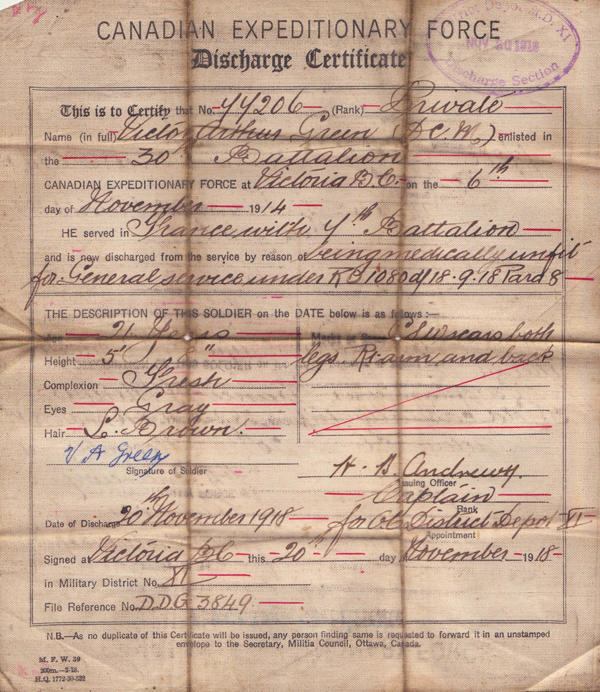 CANADIAN EXPEDITIONARY FORCE
Discharge Certificate
Dist. Depot M.D. XI
NOV 20 1918
Discharge Section
This is to Certify that No. 77206 (Rank) Private
Name (in full) Victor Arthur Green (D.C.M.) enlisted in
the 30th Battalion
CANADIAN EXPEDITIONARY FORCE at Victoria B.C. on the 6th
day of November 1914
HE served in France with 7th Battalion
and is now discharged from the service by reason of being medically unfit
for General service under RO 1080 d/18.9.18 Para 8
THE DESCRIPTION OF THIS SOLDIER on the DATE below is as follows:—
Age 21 Years
Height 5' 8"
Complexion Fresh
Eyes Gray
Hair L. Brown.
Marks or Scars both
legs. Rt. arm and back
V A Green
Signature of Soldier
H. B. Andrews
Issuing Officer
Captain
Rank
Date of Discharge 20th November 1918
for OC District Depot XI
Appointment
Signed at Victoria BC this 20th day of November 1918
in Military District No. XI
File Reference No. D.D.G. 3849.
N.B.—As no duplicate of this Certificate will be issued, any person finding same is requested to forward it in an unstamped
envelope to the Secretary, Militia Council, Ottawa, Canada.
M. F. W. 39
200m.—2-18.
H.Q. 1772-39-822